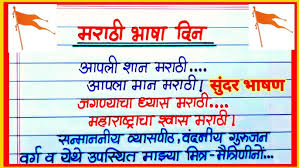 मराठी भाषा दिन
आपली शान मराठी....
आपला मान मराठी। सुंदर भाषण
जगण्याचा ध्यास मराठी....
महाराष्ट्राचा श्वास मराठी।
सन्माननीय व्यासपीठ, वंदनीय गुरुजन
वर्ग व येथे उपस्थित माझ्या मित्र-मैत्रिणींनो...